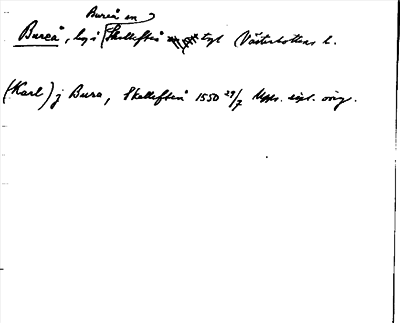 Bureå sn
Bureå, by i Skellefteå tgl Västerbottens l.
(Karl) j Bura, Skellefteå 1550 29/7 Upps. expl. orig.